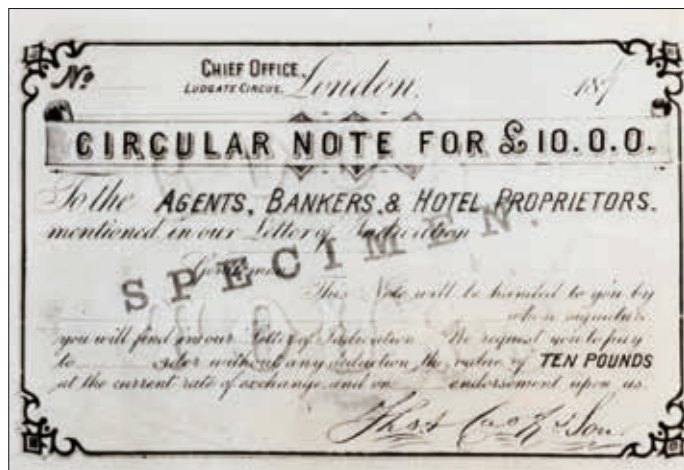 No.
CHIEF OFFICE,
LUDGATE CIRCUS.
London, 187
CIRCULAR NOTE FOR £10.0.0.
To the AGENTS, BANKERS, & HOTEL PROPRIETORS.
mentioned in our Letter of Indication
SPECIMEN.
Gentlemen
This Note will be handed to you by
whose signature
you will find in our Letter of Indication. We request you to pay
to order without any deduction the value of TEN POUNDS
at the current rate of exchange, and on endorsement upon us.
Thos Cook & Son.